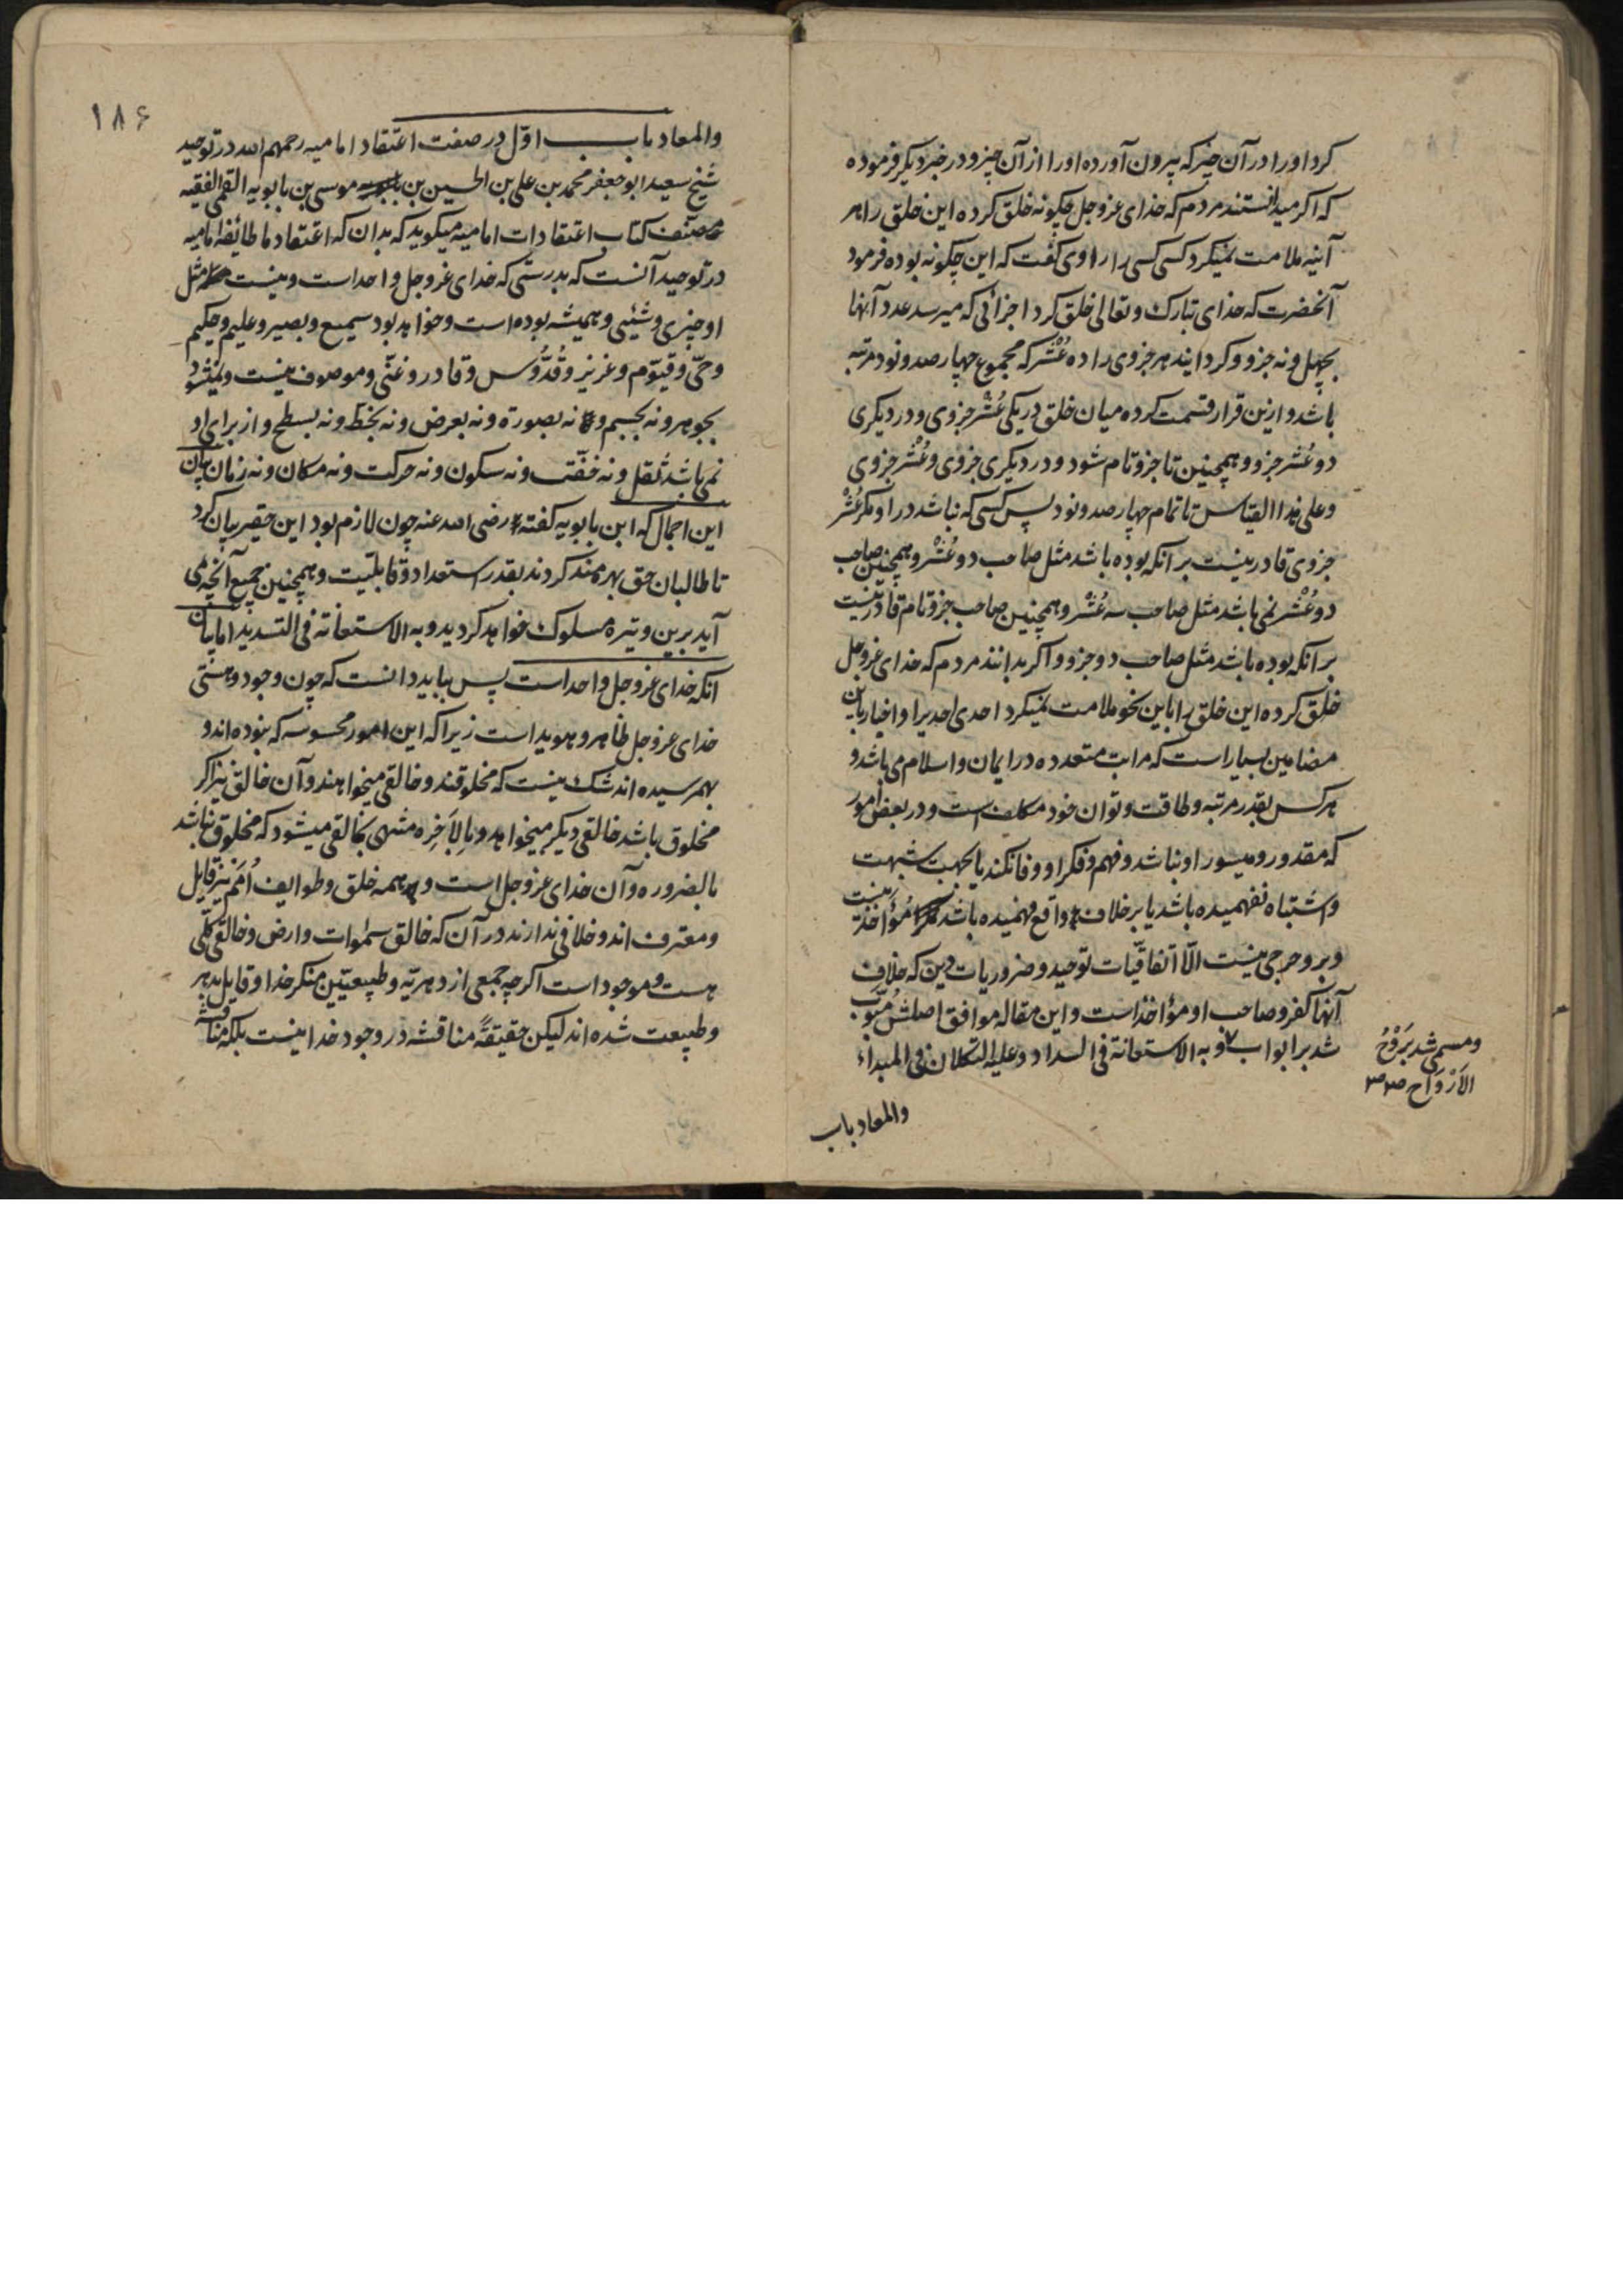 کرد او را در آن چیز که بیرون آورده او را از آن چیز و در خبر دیکر فرموده
که اکر میدانستند مردم که خدای عزوجل چکونه خلق کرده این خلق را هر
آینه ملامت نمیکرد کسی کسی را راوی کفت که این چکونه بوده فرمود
آنحضرت که خدای تبارک و تعالی خلق کرد اجزائی که میرسد عدد آنها
بچهل و نه جزو و کردانید هر جزوی را ده عُشْر که مجموع چهار صد و نود مرتبه
باشد و ازین قرار قسمت کرده میان خلق در یکی عُشْر جزوی و در دیکری
دو عُشر جزو و همچنین تا جزو تام شود و در دیکری جزوی و عُشْر جزوی
و علی هذا القیاس تا تمام چهار صد و نود پس کسی که نباشد در او مکر عُشْر
جزوی قادر نیست بر انکه بوده باشد مثل صاحب دو عُشْر و همچنین صاحب
دو عُشْر نمی باشد مثل صاحب سه عُشْر و همچنین صاحب جزو تام قادر نیست
بر انکه بوده باشد مثل صاحب دو جزو و اکر بدانند مردم که خدای عزوجل
خلق کرده این خلق را باین نحو ملامت نمیکرد احدی احدیرا و اخبار باین
مضامین بسیار است که مراتب متعدده در ایمان و اسلام می باشد و
هر کس بقدر مرتبه و طاقت و توان خود مکلف است و در بعض امور
که مقدور و میسور او نباشد و فهم و فکر او وفا نکند یا بجهت شبهت
و اشتباه نفهمیده باشد یا بر خلاف واقع فهمیده باشد مُؤاخذ نیست
و برو حرجی نیست الّا اتفاقیّات توحید و ضروریات دین که خلاف
آنها کفر و صاحب او مؤاخذ است و این مقاله موافق اصلش مُبَوّب
شد بر ابواب ٧ و به الاستعانة فی السداد و علیه التکلان فی المبداء
و مسمی شد بَرَوْحُ
الاَرْوَاح صح صح
والمعاد باب
١٨۶
والمعاد باب اوّل در صفت اعتقاد امامیه رحمهم الله در توحید
شیخ سعید ابو جعفر محمد بن علی بن الحسین بن موسی بن بابویه القمی الفقیه
مصنف کتاب اعتقادات امامیه میکوید که بدان که اعتقاد ما طائفه امامیه
در توحید آنست که بدرستی که خدای عزوجل واحد است و نیست مثل
او چیزی و شیئی و همیشه بوده است و خواهد بود سمیع و بصیر و علیم و حکیم
و حیّ و قیّوم و عزیز و قُدُّوس و قادر و غنّی و موصوف نیست و نمیشود
بجوهر و نه بجسم و نه بصورة و نه بعرض و نه بخطّ و نه بسطح و از برای او
نمی باشد ثقل و نه خفّت و نه سکون و نه حرکت و نه مکان و نه زمان بیان
این اجمال که ابن بابویه کفته رضی الله عنه چون لازم بود این حقیر بیان کرد
تا طالبان حق بهره مند کردند بقدر استعداد و قابلیت و همچنین جمیع آنچه می
آید برین وتیره مسلوک خواهد کردید و به الاستعانة فی التسدید اما بیان
انکه خدای عزوجل واحد است پس بباید دانست که چون وجود و هستی
خدای عزوجل ظاهر و هویدا است زیرا که این امور محسوسه که نبوده اند و
بهمرسیده اند شک نیست که مخلوقند و خالقی میخواهند و آن خالق نیز اکر
مخلوق باشد خالقی دیکر میخواهد و بِالاَخِره منتهی بخالقی میشود که مخلوق نباشد
بالضروره و آن خدای عزوجل است و همه خلق و طوایف اُمَم نیز قایل
و معترف اند و خلافی ندارند در آن که خالق سمٰوات و ارض و خالق کلّی
هست و موجود است اکر چه جمعی از دهریّه و طبیعیّین منکر خدا و قایل بدهر
و طبیعت شده اند لیکن حقیقةً مناقشه در وجود خدا نیست بلکه مناقشه